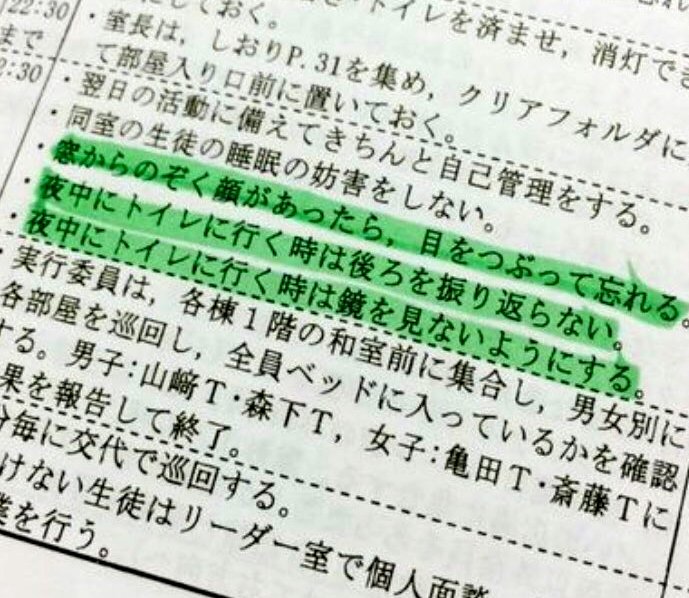 にしておく。
トイレを済ませ，消灯でき
22:30
・室長は，しおりP.31を集め，クリアフォルダに
まで
て部屋入り口前に置いておく。
2:30
・翌日の活動に備えてきちんと自己管理をする。
・同室の生徒の睡眠の妨害をしない。
・窓からのぞく顔があったら，目をつぶって忘れる。
・夜中にトイレに行く時は後ろを振り返らない。
・夜中にトイレに行く時は鏡を見ないようにする。
・実行委員は，各棟1階の和室前に集合し，男女別に
各部屋を巡回し，全員ベッドに入っているかを確認
する。男子：山﨑T・森下T，女子：亀田T・斎藤Tに
果を報告して終了。
分毎に交代で巡回する。
けない生徒はリーダー室で個人面談
業を行う。